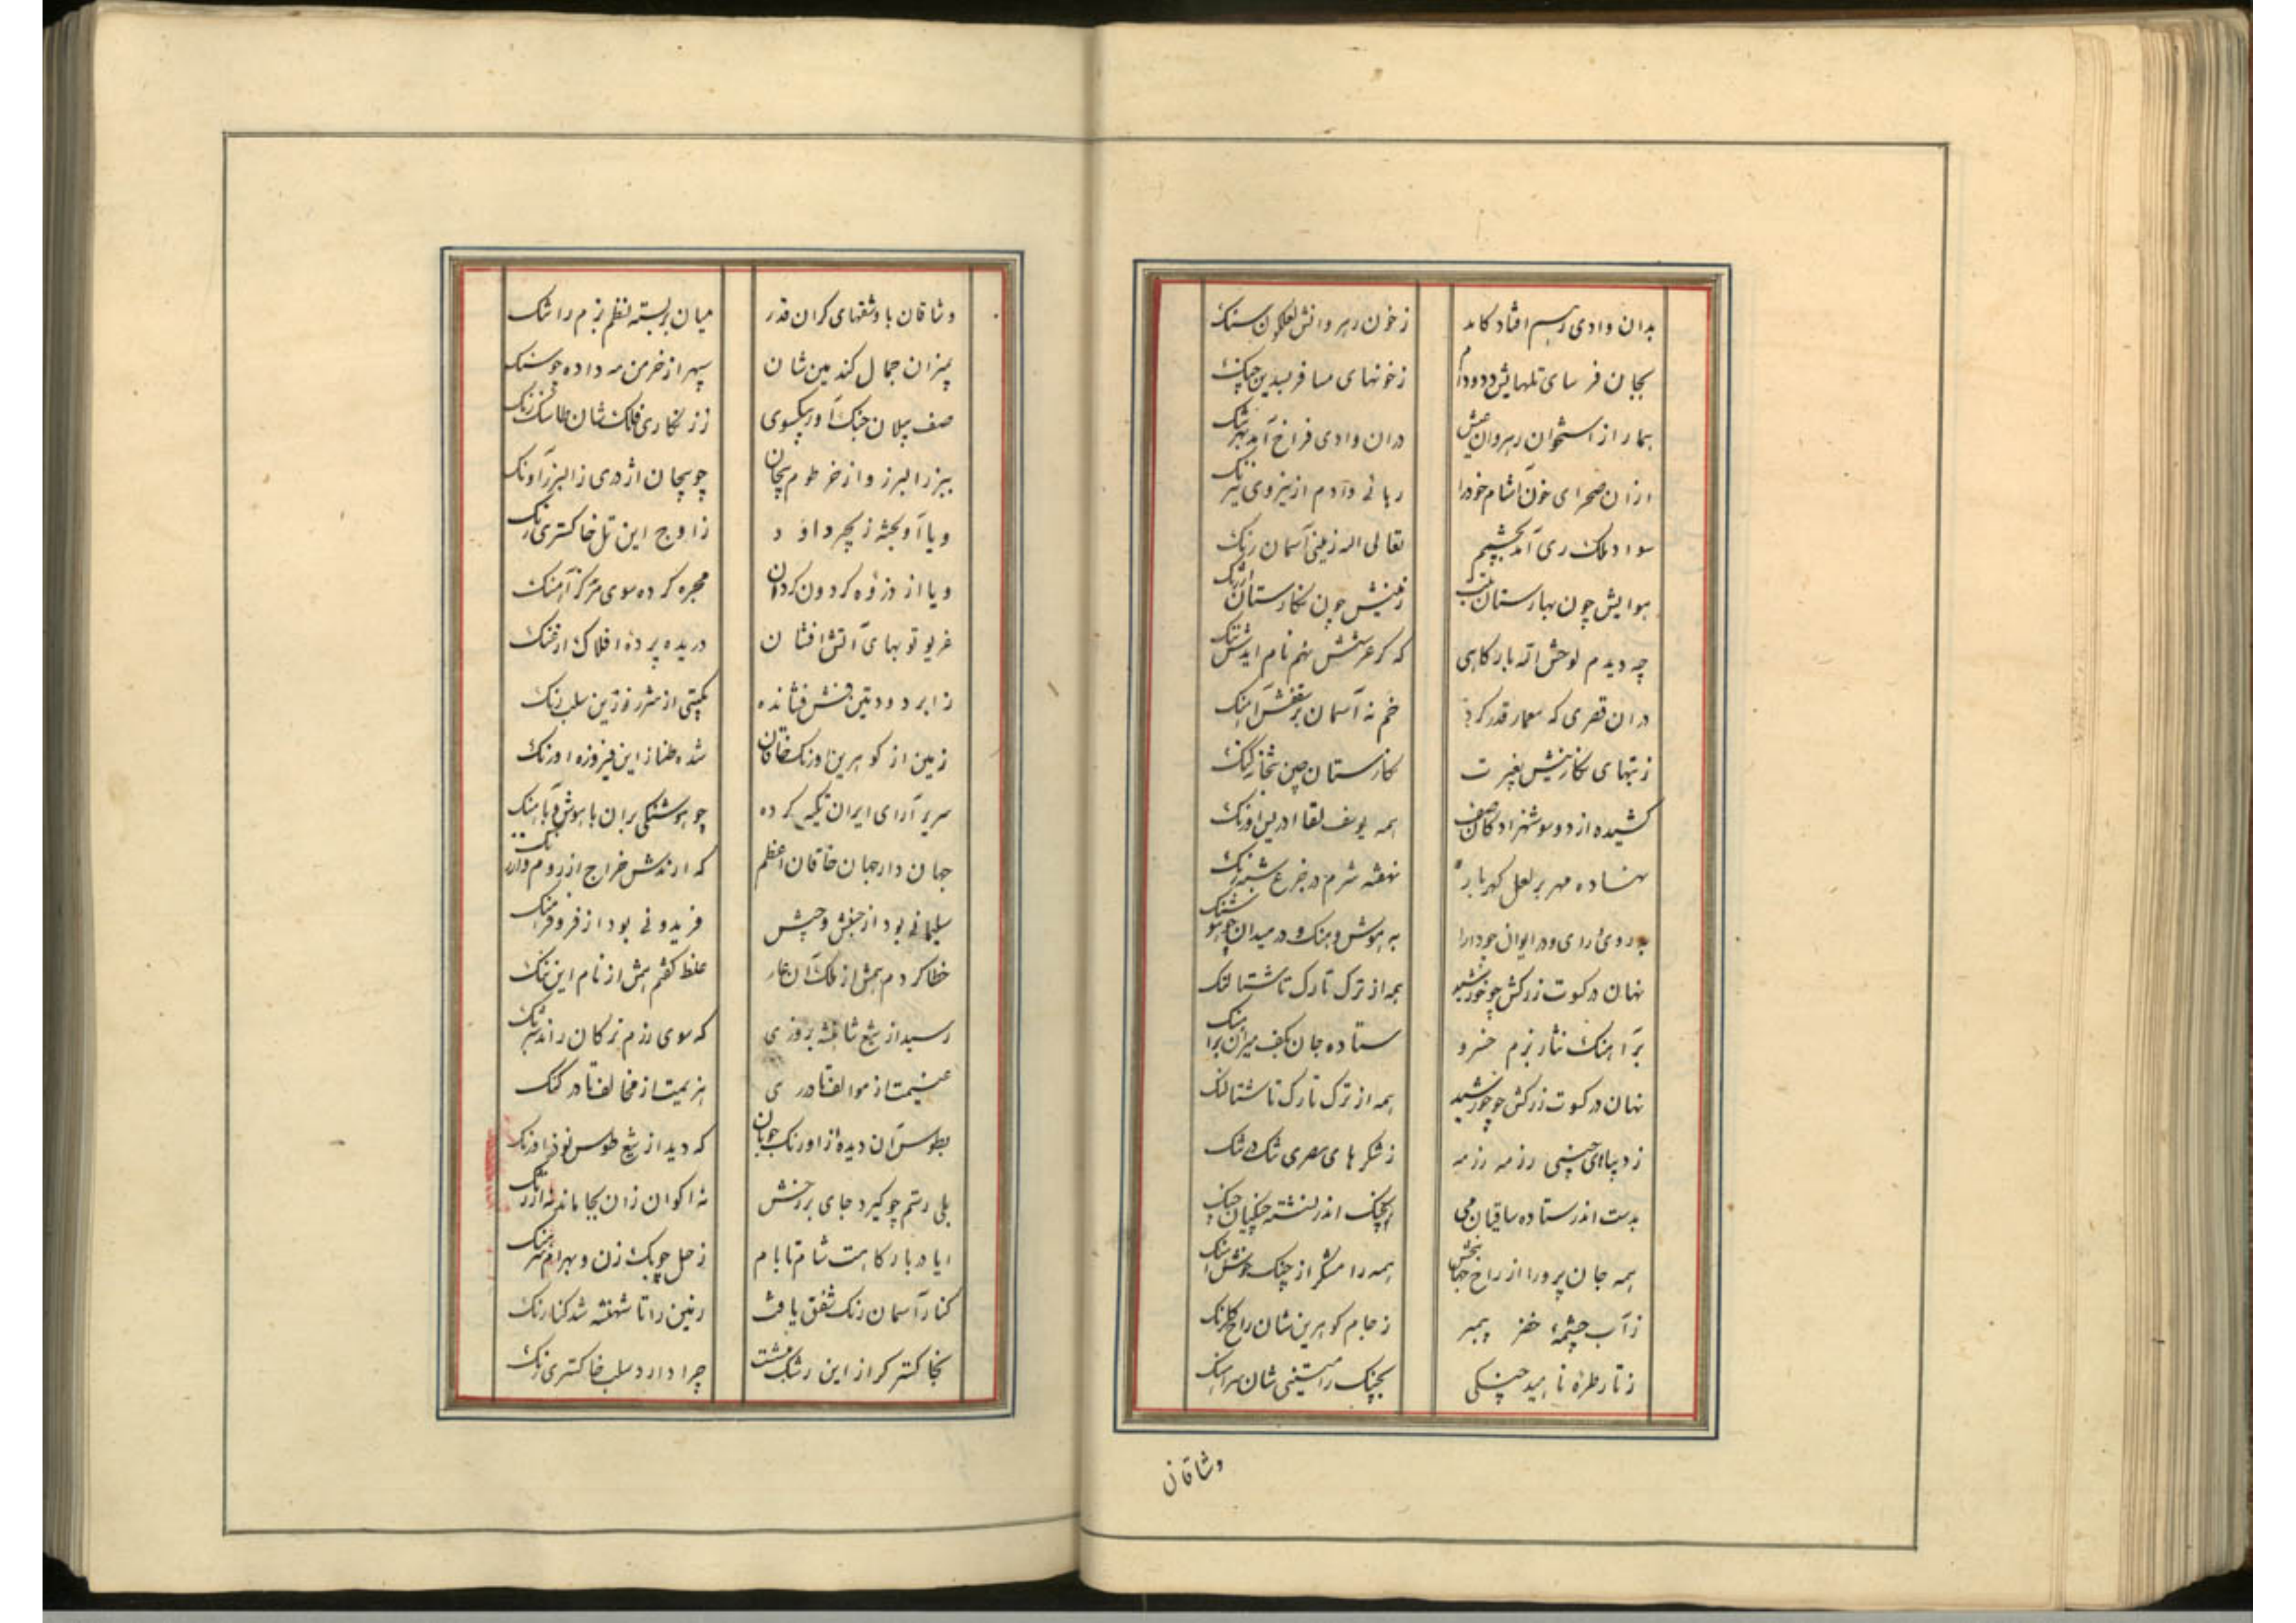 بدان وادی رهم افتاد کامد
ز خون رهروانش لعلگون سنک
بجان فرسای تلهایش دد و دام
ز خونهای مسافر سیدین چنک
بمار از استخوان رهروان عیش
دران وادی فراخ آمد بهر تنک
ازان صحرای خون آشام خود را
رهانی دادم از نیروی نیرنک
سواد ملک ری آمد بچشمم
تعالی اله زمینی آسمان رنک
هوایش چون بهارستان
زمینش چون نکارستان ارژنک
چه دیدم لوحش اله بارکاهی
که کر عرشش نهم نام ایدش ننک
دران قصری که معمار قدر کرد
خم نه آسمان بر سقفش آهنک
ز بتهای نکارینش بغیرت
نکارستان چین بتخانه کنک
کشیده از دو سو شهزادکان صف
همه یوسف لقا ادریس اورنک
نهاده مهر بر لعل کهربار
نهفته شرم در جزع شبه رنک
به روی رای و در ایوان چو دارا
به هوش و هنک و در میدان چو هوشنک
نهان در کسوت زرکش چو خورشید
همه از ترک تارک تا شتالنک
بر آهنک نثار بزم خسرو
ستاده جان بکف میران بر آهنک
نهان در کسوت زرکش چو خورشید
همه از ترک تارک تا شتالنک
ز دیباهای چینی رزمه رزمه
ز شکرهای مصری تنک در تنک
بدست اندر ستاده ساقیان می
بچنک اندر نشسته چنکیان چنک
همه جان پرور از راح جهان بخش
همه رامشکر از چنک خوش آهنک
ز آب چشمهٔ خضر پیمبر
ز جام کوهرین شان راح کلرنک
ز تار طرهٔ ناهید چنکی
بچنک رامتینی شان سر آهنک
وشاقان
وشاقان با وشقهای کران قدر
میان بربسته نظم بزم را تنک
بمیزان جمال کندمین شان
سپهر از خرمن مه داده جو سنک
صف پیلان جنک آور بیکسوی
ز زنکاری فلک شان طاسک زنک
ببرز البرز و از خرطوم پیچان
چو پیچان اژدری ز البرز آونک
و یا آویخته زنجیر داود
ز اوج این تل خاکستری رنک
و یا از ذروه کردون کردان
مجره کرده سوی مرکز آهنک
غریو توپهای آتش افشان
دریده پرده افلاک از غنک
ز ابر دود تنین فش فشانده
بکیتی از شرر زرین سلب رنک
زمین از کوهرین اورنک خاقان
شده طناز این فیروزه اورنک
سریر آرای ایران تکیه کرده
چو هوشنکی بران با هوش و با هنک
جهان دار جهان خاقان اعظم
که آرندش خراج از روم و از زنک
سلیمانی بود از جنبش و جیش
فریدونی بود از فر و فرهنک
خطا کردم همش از ملک آن عار
غلط کفتم همش از نام این ننک
رسید از تیغ شاهنشه بروزی
که سوی رزم ترکان راند شبرنک
غنیمت از موالف تا در ری
هزیمت از مخالف تا در کنک
بطوس آن دیده ز اورنک جویان
که دید از تیغ طوس نوذر اورنک
بلی رستم چو کیرد جای بر رخش
نه اکوان زان بجا ماند نه ارژنک
ایا دربارکاهت شام تا بام
زحل چوبک زن و بهرام سرهنک
کنار آسمان رنک شفق یافت
زمین را تا شهنشه شد کنارنک
بخاکستر کر از این رشک ننشست
چرا دارد سلب خاکستری رنک